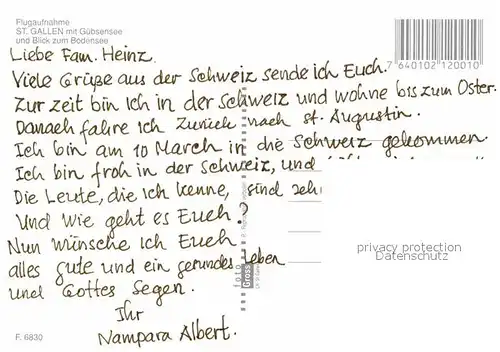 Flugaufnahme
ST. GALLEN mit Gübsensee
und Blick zum Bodensee
Liebe Fam. Heinz.
Viele Grüße aus der Schweiz sende ich Euch.
7640102120010
Zur zeit bin ich in der Schweiz und wohne bis zum Oster.
Danach fahre ich zurück nach St. Augustin.
Ich bin am 10 March in die Schweiz gekommen.
Ich bin froh in der Schweiz, und
Die Leute, die ich kenne, sind sehr
Und wie geht es Euch?
Nun wünsche ich Euch
alles gute und ein gesundes Leben
und Gottes Segen.
Ihr
Nampara Albert.
privacy protection
Datenschutz
foto
Gross
F. 6830